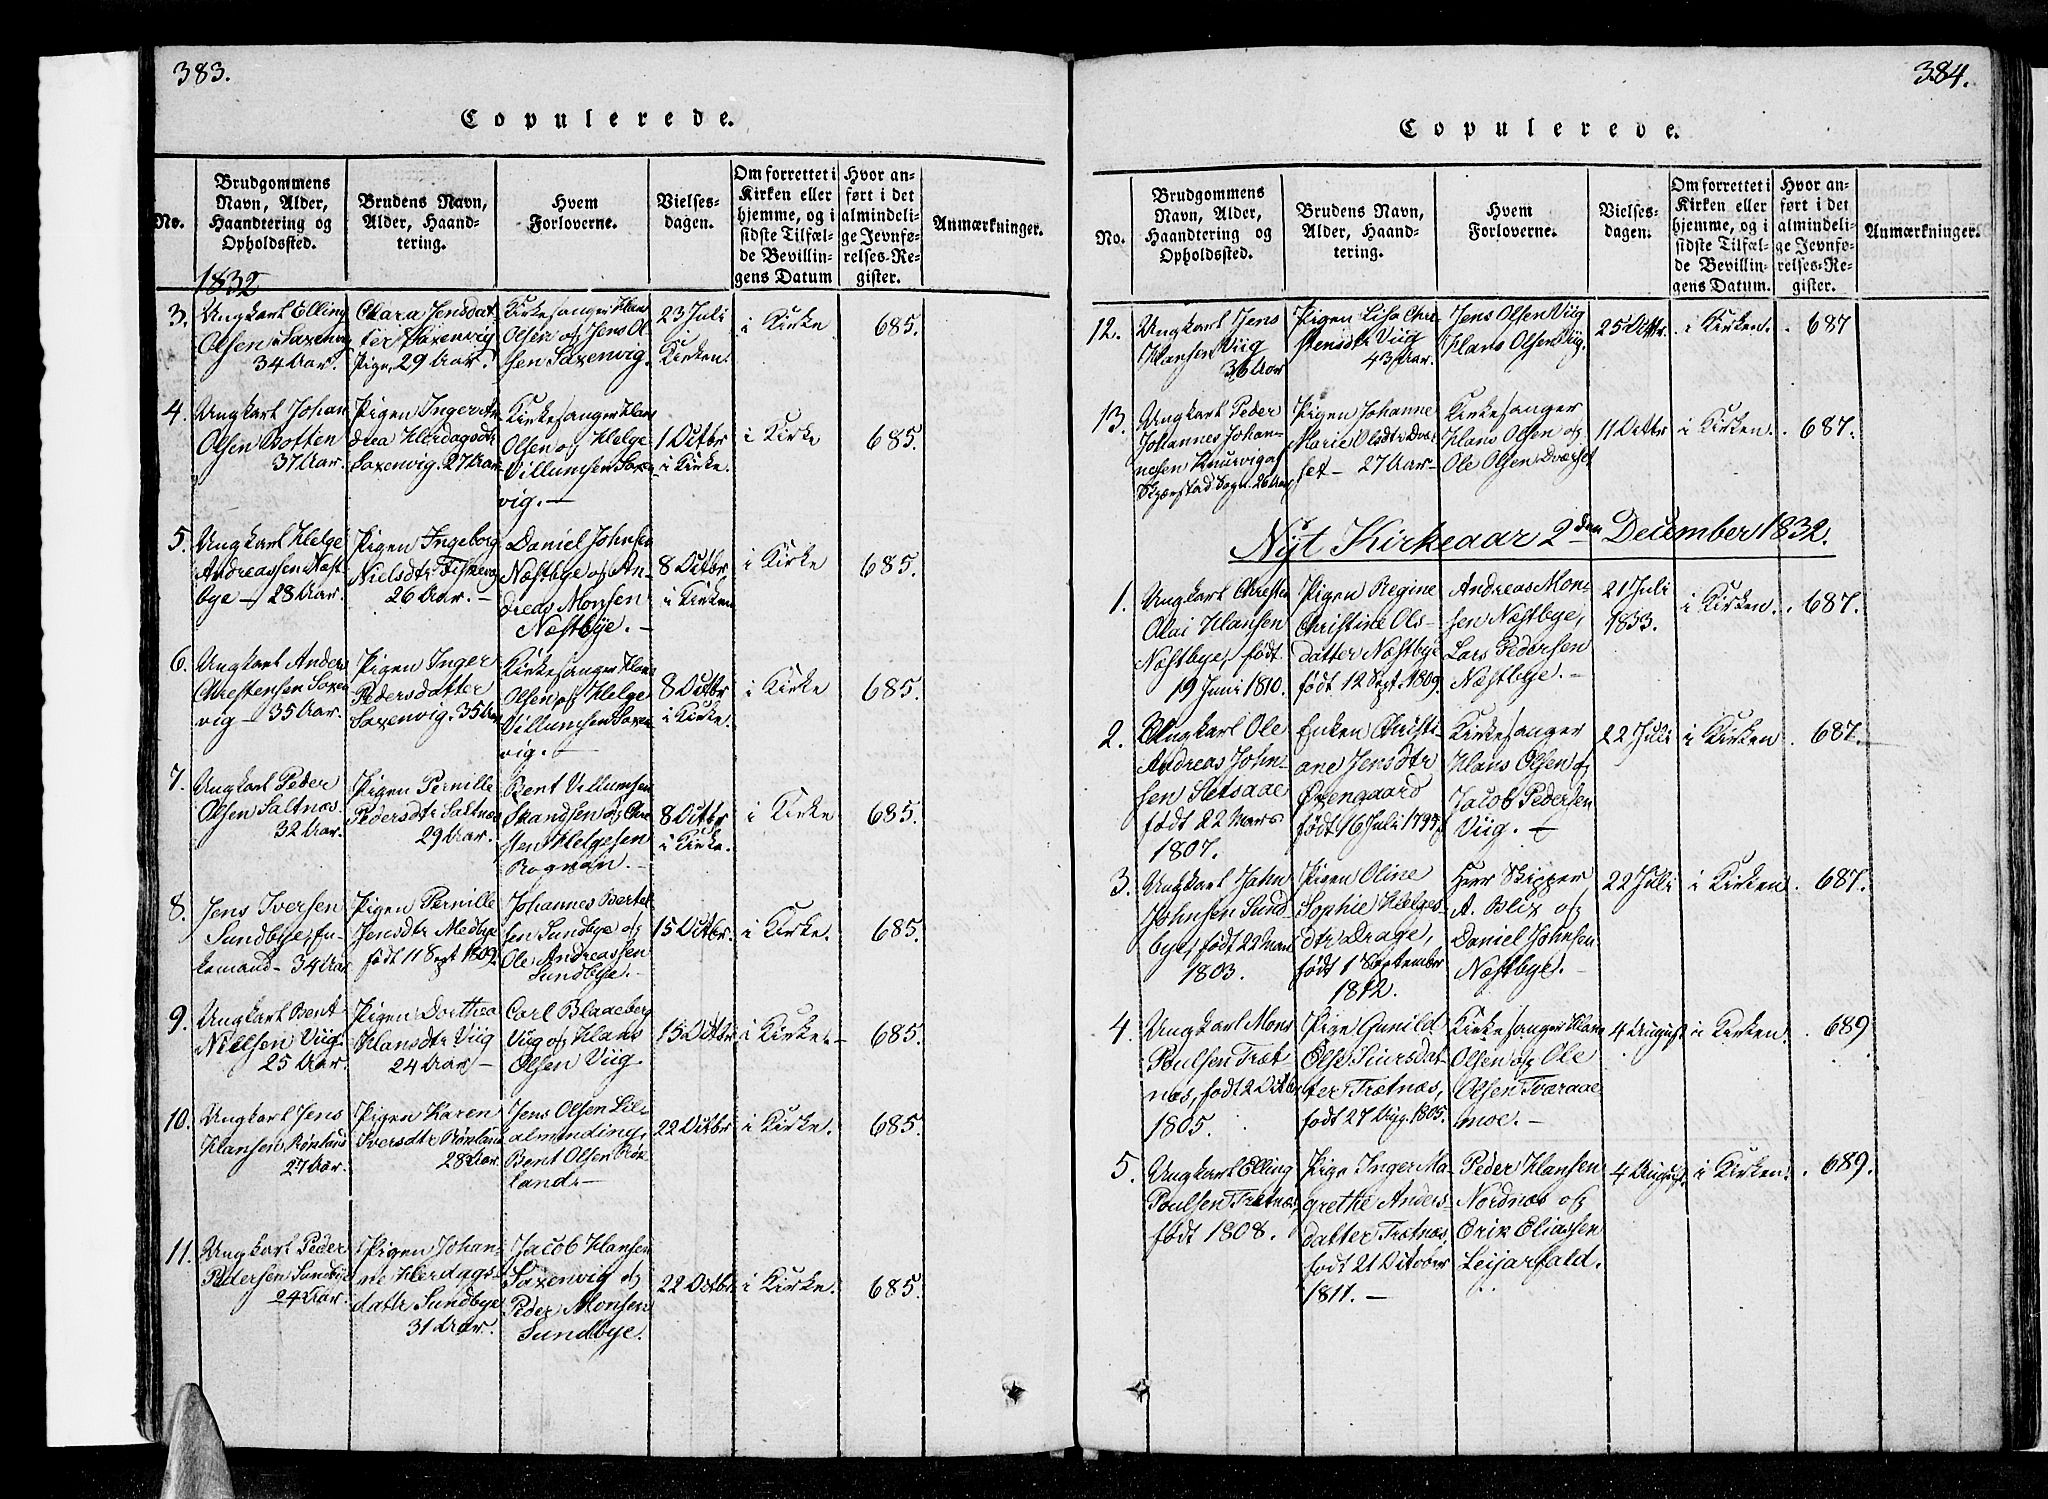 383.
Copulerede.
No.
Brudgommens
Navn, Alder,
Haandtering og
Opholdssted.
Brudens Navn,
Alder, Haand-
tering.
Hvem
Forloverne.
Vielses-
dagen.
Om forrettet i
Kirken eller
hjemme, og i
sidste Tilfæl-
de Bevillin-
gens Datum
Hvor an-
ført i det
almindeli-
ge Jevnfø-
relses-Re-
gister.
Anmærkninger.
1832
3.
Ungkarl Elling
Olsen Saxenvig
34 Aar.
Clara Jensdat-
ter Saxenvig
Pige, 29 Aar.
Kirkesanger Hans
Olsen og Jens Ol-
sen Saxenvig.
23 Juli
Kirken
i Kirke
685.
4.
Ungkarl Johan
Olsen Botten
37 Aar.
Pigen Inger An-
drea Herdagsdtr
Saxenvig. 27 Aar
Kirkesanger Hans
Olsen og Helge
Villumsen Saxen-
vig. —
1 Octbr
i Kirke.
i Kirke
685.
5.
Ungkarl Helge
Andreassen Næst-
bye — 28 Aar.
Pigen Ingeborg
Nielsdtr Fiskevaag
26 Aar. —
Daniel Johnsen
Næstbye og An-
dreas Monsen
Næstbye. —
8 Octbr
i Kirken
i Kirke
685.
6.
Ungkarl Anders
Chrestensen Saxen-
vig — 35 Aar.
Pigen Inger
Pedersdatter
Saxenvig. 35 Aar
Kirkesanger Hans
Olsen og Helge
Villumsen Saxen-
vig. —
8 Octbr
i Kirke.
i Kirke
685.
7.
Ungkarl Peder
Olsen Saltnæs
32 Aar.
Pigen Pernille
Pedersdtr Saltnæs
29 Aar.
Bent Villumsen
Skandsen og Chre-
sten Helgesen
Rognan. —
8 Octbr
i Kirke.
i Kirke
685.
8.
Jens Iversen
Sundbye, En-
kemand — 34 Aar
Pigen Pernille
Jensdtr Medbye
født 11 Sept 1802.
Johannes Bertel-
sen Sundbye og
Ole Andreassen
Sundbye. —
15 Octbr.
i Kirke.
685.
9.
Ungkarl Bent
Nielsen Viig.
25 Aar.
Pigen Dorthea
Hansdtr Viig
24 Aar —
Carl Blaaeberg
Viig og Hans
Olsen Viig.
15 Octbr
i Kirke. —
685.
10.
Ungkarl Jens
Hansen Rønland
27 Aar.
Pigen Karen
Iversdtr Rønland
28 Aar.
Jens Olsen Lil-
almending,
Bent Olsen Røk-
land. —
22 Octbr
i Kirke.
685.
11.
Ungkarl Peder
Pedersen Sundbye
24 Aar.
Pigen Johan-
ne Herdags-
dattr Sundbye
31 Aar.
Jacob Hansen
Saxenvig og
Peder Monsen
Sundbye.
22 Octbr.
i Kirke.
685.
384.
Copulerede.
No.
Brudgommens
Navn, Alder,
Haandtering og
Opholdssted.
Brudens Navn,
Alder, Haand-
tering.
Hvem
Forloverne.
Vielses-
dagen.
Om forrettet i
Kirken eller
hjemme, og i
sidste Tilfæl-
de Bevillin-
gens Datum.
Hvor an-
ført i det
almindeli-
ge Jevnfø-
relses-Re-
gister.
Anmærkninger.
12.
Ungkarl Jens
Hansen Viig
36 Aar
Pigen Lisa Chre-
stensdtr Viig
43 Aar.
Jens Olsen Viig
Hans Olsen Viig.
25 Octbr.
i Kirken.
687
13.
Ungkarl Peder
Johannes Johan-
nesen Knurvig af
Skjerstad Sogn. 26 Aar
Pigen Johanne
Marie Olsdtr Dver-
set — 27 Aar —
Kirkesanger
Hans Olsen og
Ole Olsen Dverset
11 Octbr
i Kirken.
687.
Nyt Kirkeaar 2den December 1832.
1.
Ungkarl Chresten
Olai Hansen
Næstbye, født
19 Juni 1810.
Pigen Regine
Christine Ols-
datter Næstbye
født 12 Sept. 1809.
Andreas Mon-
sen Næstbye,
Lars Pedersen
Næstbye. —
21 Juli
1833.
i Kirken.
687.
2.
Ungkarl Ole
Andreas John-
sen Setsaae
født 22 Mars
1807.
Enken Christi-
ane Jensdtr
Øxengaard
født 16 Juli 1797
Kirkesanger
Hans Olsen og
Jacob Pedersen
Viig. —
22 Juli
i Kirken
687.
3.
Ungkarl John
Johnsen Sund-
bye, født 22 Mars
1803.
Pigen Oline
Sophie Helges-
dtr Drage,
født 1 September
1812.
Herr Skipper
A. Blix og
Daniel Johnsen
Næstbye. —
22 Juli
i Kirken.
687.
4.
Ungkarl Mons
Poulsen Trætnes
næs, født 2 Octbr
1805.
Pige Gunild
Else Siursdat-
ter Trætnæs,
født 27 Aug. 1805.
Kirkesanger Hans
Olsen og Ole
Olsen Tværaae-
moe. —
4 August
i Kirken.
689
5.
Ungkarl Elling
Poulsen Trætnæs,
født 1808.
Pige Inger Ma-
grethe Anders-
datter Trætnæs,
født 21 October
1811. —
Peder Hansen
Nordnæs og
Erik Eliassen
Leijarfald.
4 August.
i Kirken.
689.